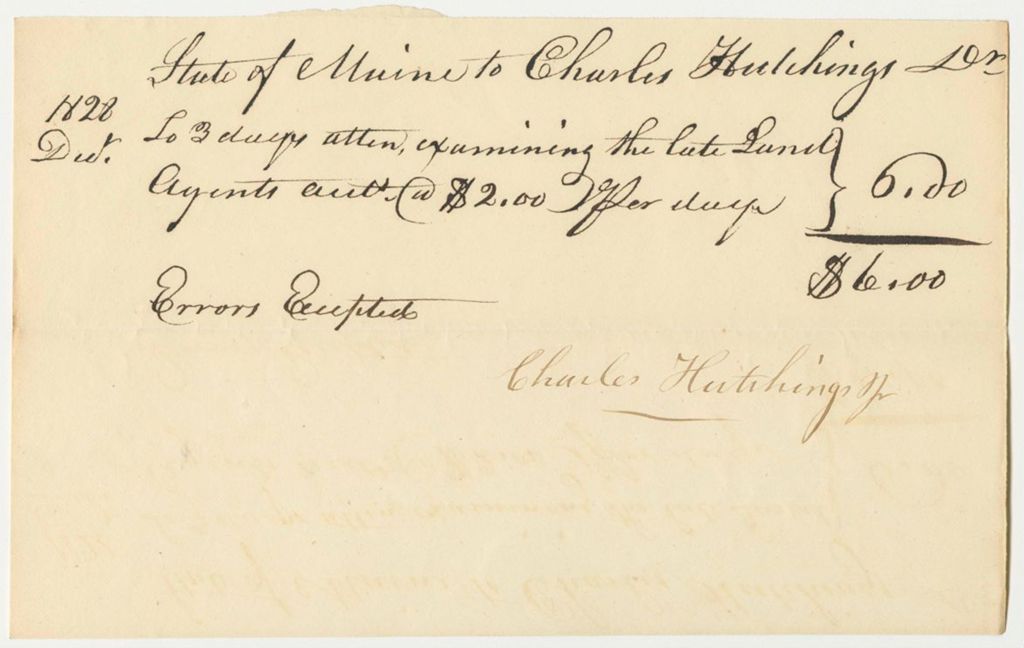 State of Maine to Charles Hutchings Dr
1828
Decr. To 3 days atten, examining the late Land } 6.00
Agents acct. @ $2.00 Per day
$6.00
Errors Excepted
Charles Hutchings Jr